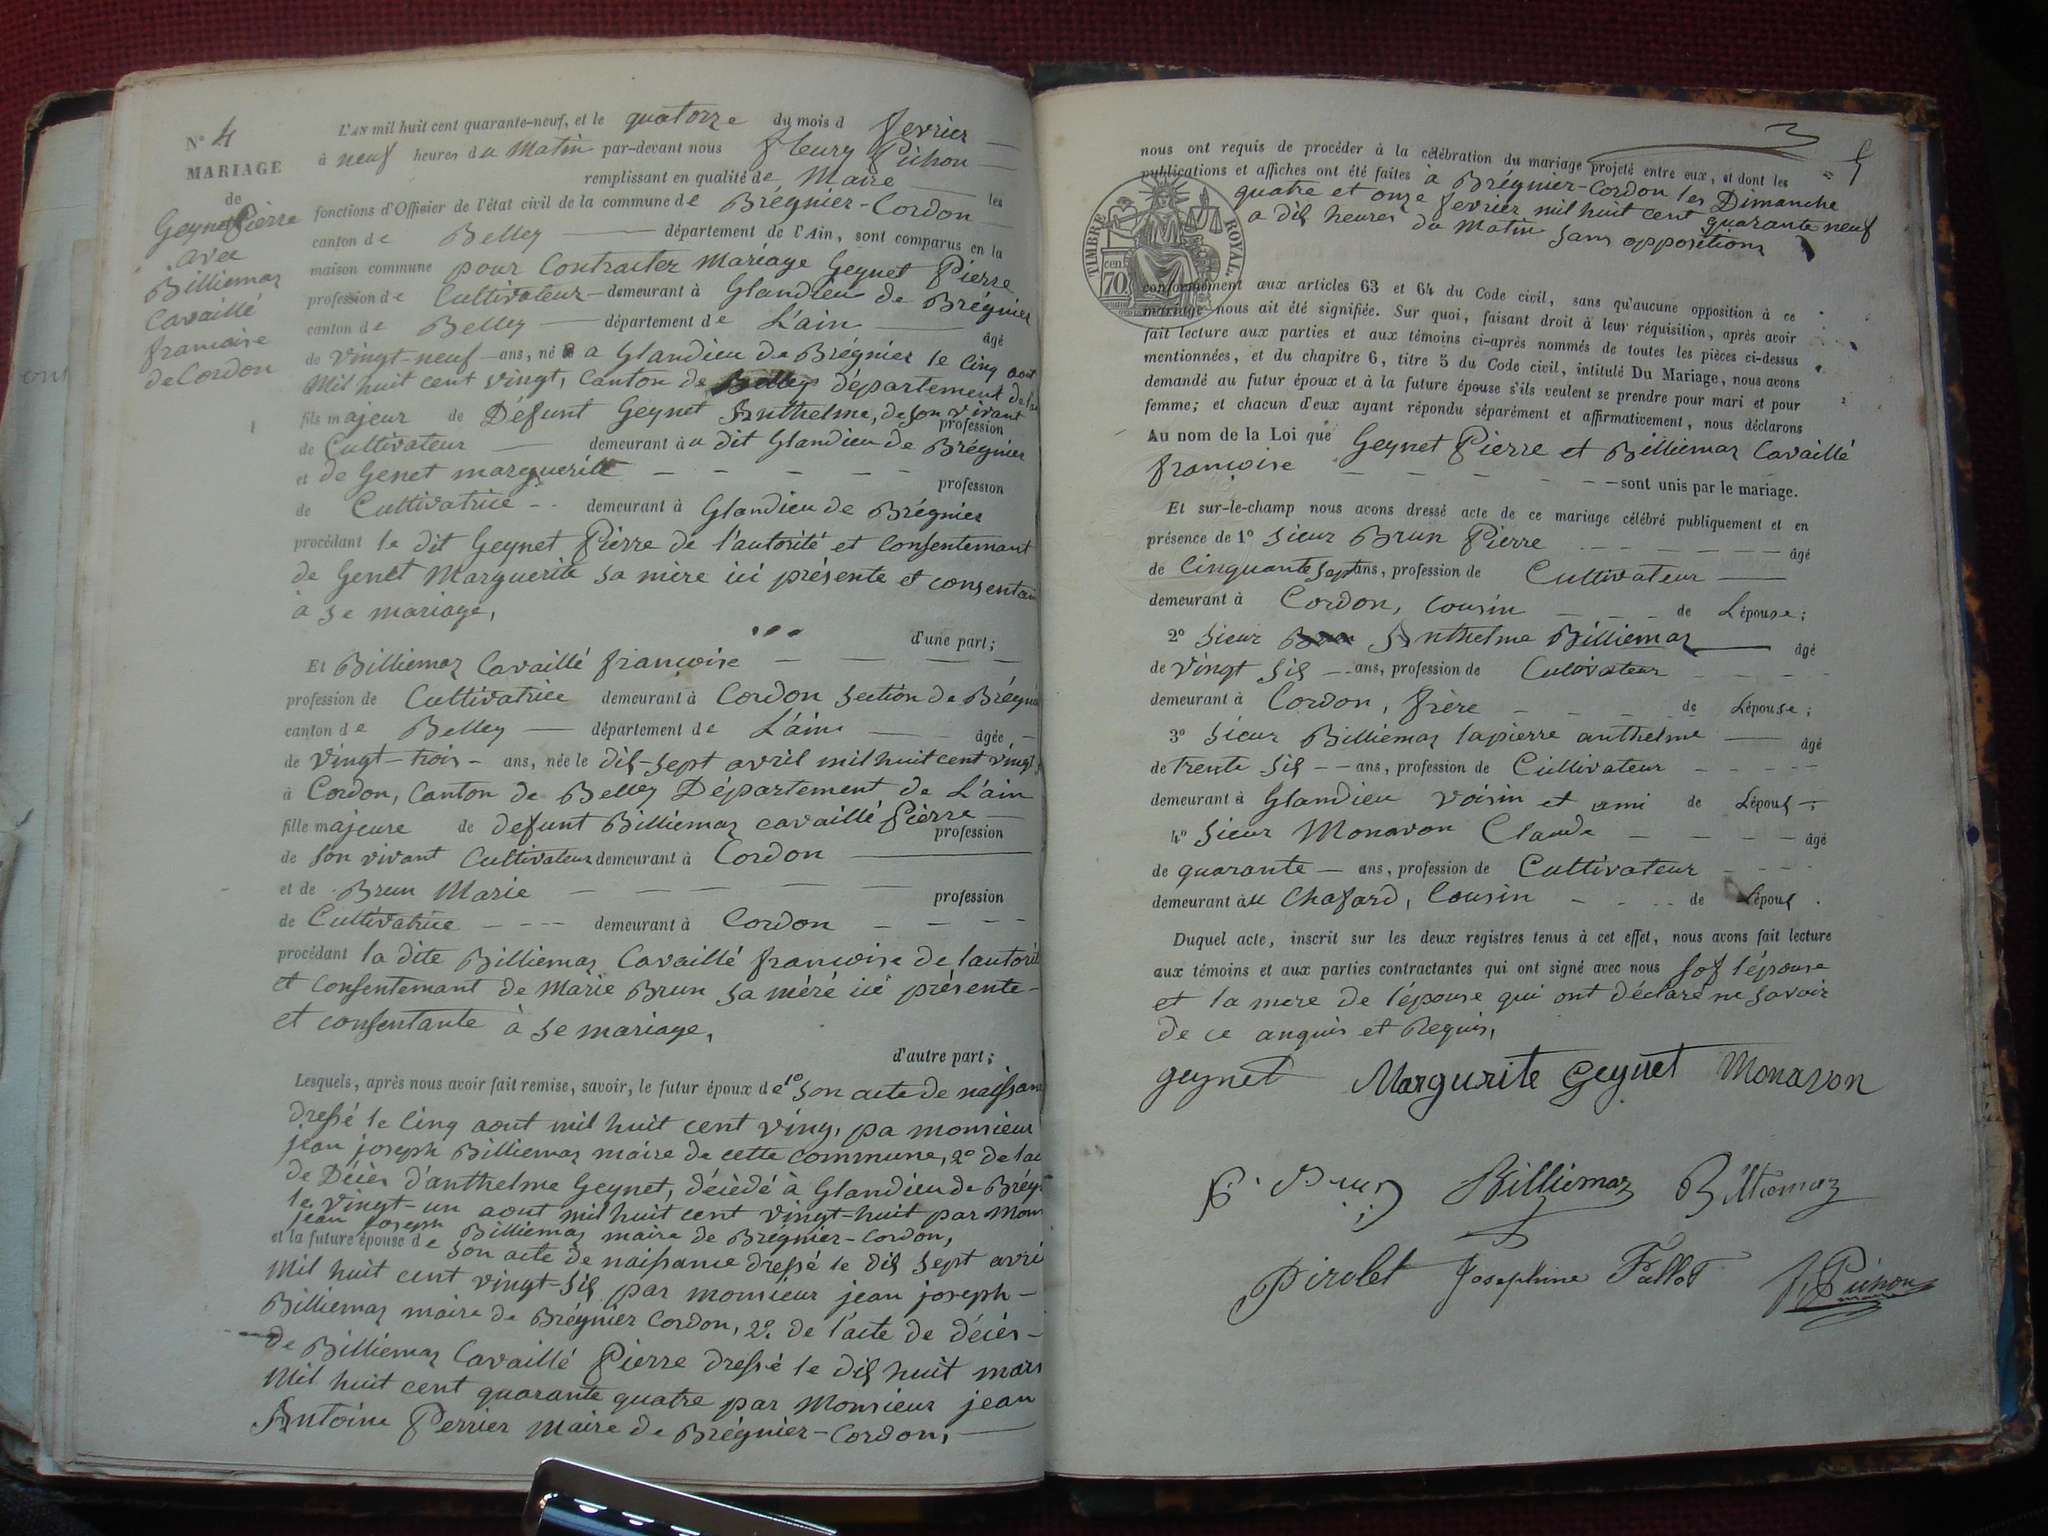 N° 4
MARIAGE
de
Geynet Pierre
avec
Billiemaz
Cavaillé
françoise
de Cordon
L'AN mil huit cent quarante-neuf, et le quatorze du mois d fevrier
à neuf heures du Matin par-devant nous fleury Pichon
remplissant en qualité de Maire les
fonctions d'Offisier de l'état civil de la commune de Brégnier-Cordon
canton de Belley département de l'Ain, sont comparus en la
maison commune pour Contracter Mariage Geynet Pierre
profession de Cultivateur demeurant à Glandieu de Brégnier
canton de Belley département de L'ain âgé
de vingt-neuf ans, né a Glandieu de Brégnier le cinq aout
Mil huit cent vingt, Canton de Belley département de
fils majeur de Défunt Geynet Anthelme, de son vivant profession
de Cultivateur demeurant au dit Glandieu de Brégnier
et de Genet marguerite profession
de Cultivatrice demeurant à Glandieu de Brégnier
procédant le dit Geynet Pierre de l'autorité et Consentemant
de Genet Marguerite sa mère ici présente et consentan
à se mariage,
d'une part;
Et Billiemaz Cavaillé françoise
profession de Cultivatrice demeurant à Cordon Section de Brégni
canton de Belley département de L'ain âgée
de vingt-trois ans, née le dis-sept avril mil huit cent vingt
à Cordon, Canton de Belley Département de L'ain
fille majeure de defunt Billiemaz cavaillé Pierre profession
de son vivant Cultivateur demeurant à Cordon
et de Brun Marie profession
de Cultivatrice demeurant à Cordon
procédant la dite Billiemaz Cavaillé françoise de lautorit
et Consentemant de Marie Brun sa méré ici présente
et consentante à se mariage,
d'autre part;
Lesquels, après nous avoir fait remise, savoir, le futur époux de 1° Son acte de naissan
dressé le Cinq aout mil huit cent ving, pa monsieur
jean joseph Billiemaz maire de cette commune, 2° de l'ac
de Décès d'anthelme Geynet, décèdé à Glandieu de Brég
le vingt-un aout mil huit cent vingt-huit par Mon
jean joseph Billiemaz maire de Brégnier-Cordon,
et la future épouse de Son acte de naissance dressé le dis sept avri
Mil huit cent vingt-sis par monsieur jean joseph
Billiemaz maire de Brégnier Cordon, 2° de l'acte de décès
de Billiemaz Cavaillé Pierre dressé le dis huit mars
Mil huit cent quarante quatre par Monsieur jean
Antoine Perrier Maire de Brégnier-Cordon,
5
nous ont requis de procéder à la célébration du mariage projeté entre eux, et dont les
publications et affiches ont été faites à Brégnier-Cordon les Dimanche
quatre et onze fevrier mil huit cent quarante neuf
a dis heures du Matin sans oppositions
TIMBRE ROYAL
70 cent
conformément aux articles 63 et 64 du Code civil, sans qu'aucune opposition à ce
mariage nous ait été signifiée. Sur quoi, faisant droit à leur réquisition, après avoir
fait lecture aux parties et aux témoins ci-après nommés de toutes les pièces ci-dessus
mentionnées, et du chapitre 6, titre 5 du Code civil, intitulé Du Mariage, nous avons
demandé au futur époux et à la future épouse s'ils veulent se prendre pour mari et pour
femme; et chacun d'eux ayant répondu séparément et affirmativement, nous déclarons
Au nom de la Loi que Geynet Pierre et Billiemaz Cavaillé
françoise sont unis par le mariage.
Et sur-le-champ nous avons dressé acte de ce mariage célébré publiquement et en
présence de 1° Sieur Brun Pierre âgé
de Cinquante sept ans, profession de Cultivateur
demeurant à Cordon, Cousin de Lépouse;
2° Sieur Anthelme Billiemaz âgé
de vingt sis ans, profession de Culivateur
demeurant à Cordon, frère de Lépouse;
3° Sieur Billiemaz lapierre anthelme âgé
de trente sis ans, profession de Cultivateur
demeurant à Glandieu voisin et ami de Lépous;
4° Sieur Monavon Claude âgé
de quarante ans, profession de Cultivateur
demeurant au Chafard, Cousin de Lépous.
Duquel acte, inscrit sur les deux registres tenus à cet effet, nous avons fait lecture
aux témoins et aux parties contractantes qui ont signé avec nous Sof l'épouse
et la mere de l'épouse qui ont déclaré ne savoir
de ce anquis et Requis,
geynet Margurite Geynet Monavon
Billiemaz Billiemaz
Pirolet Josephine Fallot f. Pichon
maire